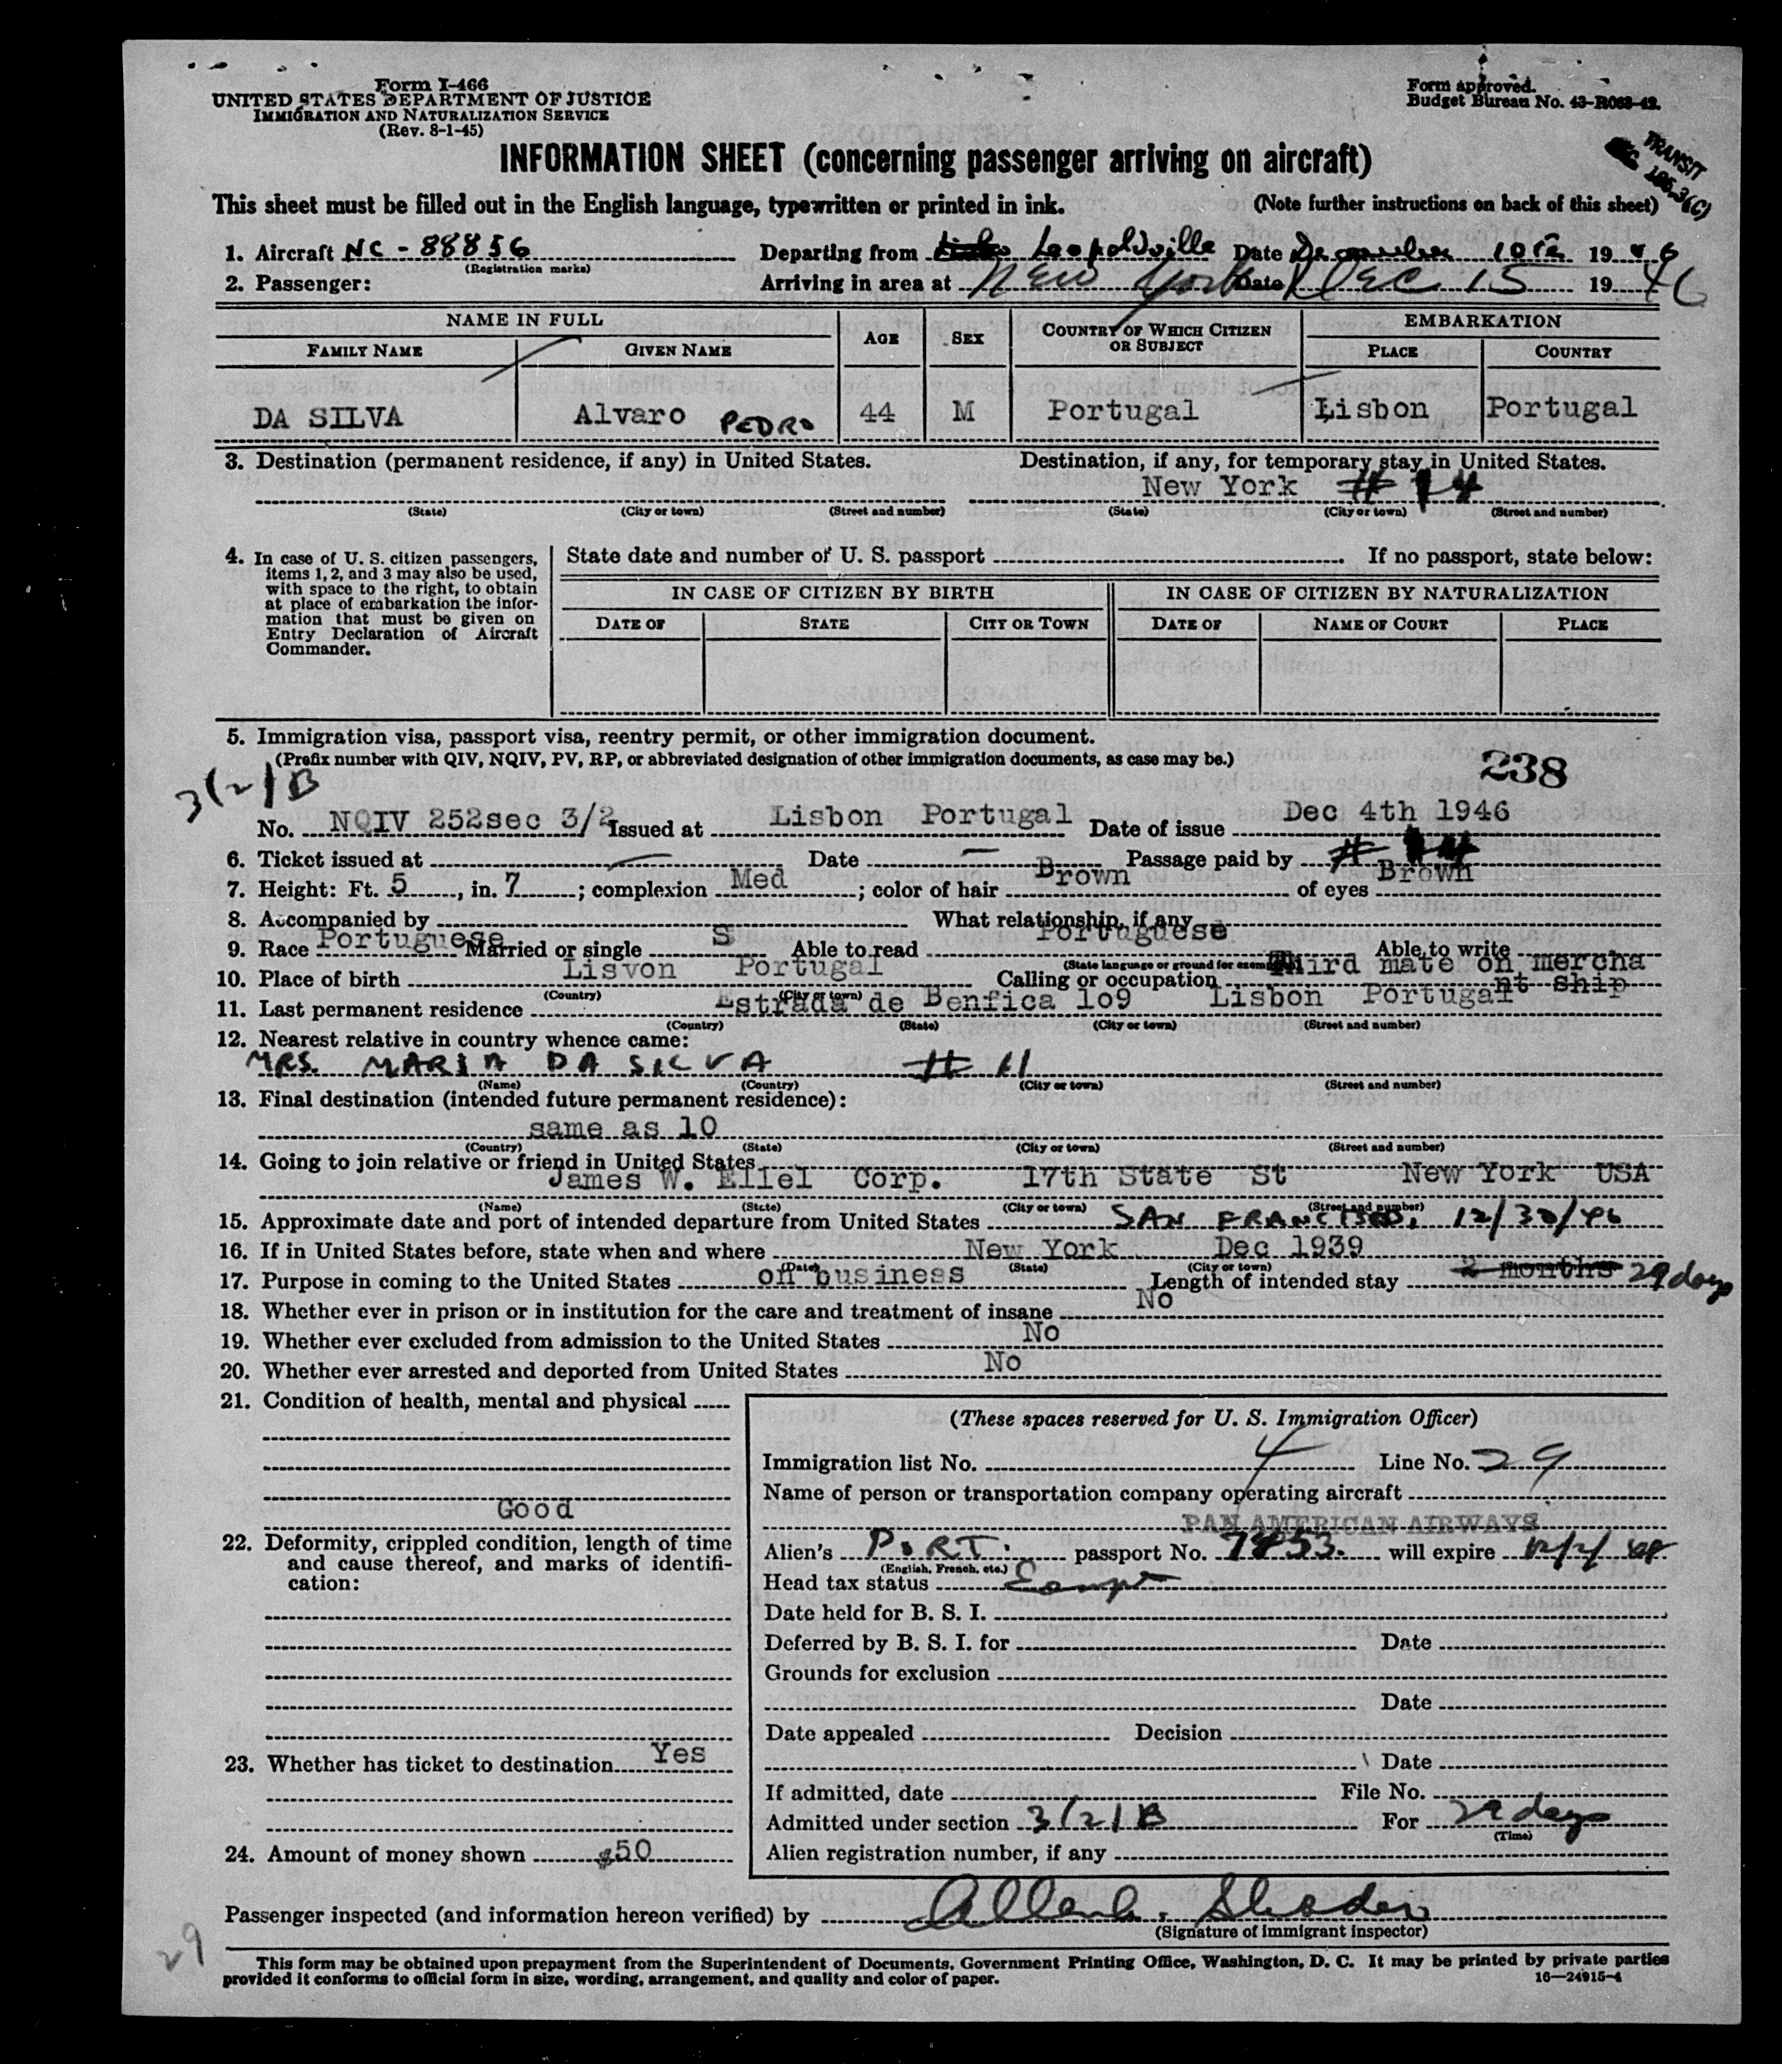 Form I-466
UNITED STATES DEPARTMENT OF JUSTICE
IMMIGRATION AND NATURALIZATION SERVICE
(Rev. 8-1-45)
Form approved.
Budget Bureau No. 43-R063-42.
TRANSIT
SEC 186.3(C)
INFORMATION SHEET (concerning passenger arriving on aircraft)
This sheet must be filled out in the English language, typewritten or printed in ink. (Note further instructions on back of this sheet)
1. Aircraft NC-88856 Departing from Leopoldville Date December 10th 1946
(Registration marks)
2. Passenger: Arriving in area at New York Date DEC 15 1946
NAME IN FULL AGE SEX COUNTRY OF WHICH CITIZEN OR SUBJECT EMBARKATION
FAMILY NAME GIVEN NAME PLACE COUNTRY
DA SILVA Alvaro PEDRO 44 M Portugal Lisbon Portugal
3. Destination (permanent residence, if any) in United States. Destination, if any, for temporary stay in United States.
New York # 14
(State) (City or town) (Street and number) (State) (City or town) (Street and number)
4. In case of U. S. citizen passengers, items 1, 2, and 3 may also be used, with space to the right, to obtain at place of embarkation the information that must be given on Entry Declaration of Aircraft Commander.
State date and number of U. S. passport If no passport, state below:
IN CASE OF CITIZEN BY BIRTH IN CASE OF CITIZEN BY NATURALIZATION
DATE OF STATE CITY OR TOWN DATE OF NAME OF COURT PLACE
5. Immigration visa, passport visa, reentry permit, or other immigration document.
(Prefix number with QIV, NQIV, PV, RP, or abbreviated designation of other immigration documents, as case may be.)
238
3(2)B
No. NQIV 252sec 3/2 Issued at Lisbon Portugal Date of issue Dec 4th 1946
6. Ticket issued at — Date — Passage paid by # 14
7. Height: Ft. 5, in. 7; complexion Med; color of hair Brown of eyes Brown
8. Accompanied by What relationship, if any
9. Race Portuguese Married or single S Able to read Portuguese Able to write
(State language or ground for exemption)
10. Place of birth Lisvon Portugal Calling or occupation Third mate on mercha
nt ship
(Country) (City or town)
11. Last permanent residence Estrada de Benfica 1o9 Lisbon Portugal
(Country) (State) (City or town) (Street and number)
12. Nearest relative in country whence came:
MRS. MARIA DA SILVA # 11
(Name) (Country) (City or town) (Street and number)
13. Final destination (intended future permanent residence):
same as 10
(Country) (State) (City or town) (Street and number)
14. Going to join relative or friend in United States
James W. Ellel Corp. 17th State St New York USA
(Name) (State) (City or town) (Street and number)
15. Approximate date and port of intended departure from United States SAN FRANCISCO, 12/30/46
16. If in United States before, state when and where New York Dec 1939
(Date) (State) (City or town)
17. Purpose in coming to the United States on business Length of intended stay 2 months 29 days
18. Whether ever in prison or in institution for the care and treatment of insane No
19. Whether ever excluded from admission to the United States No
20. Whether ever arrested and deported from United States No
21. Condition of health, mental and physical
Good
22. Deformity, crippled condition, length of time and cause thereof, and marks of identification:
23. Whether has ticket to destination Yes
24. Amount of money shown $50
(These spaces reserved for U. S. Immigration Officer)
Immigration list No. 4 Line No. 29
Name of person or transportation company operating aircraft
PAN AMERICAN AIRWAYS
Alien's PORT. passport No. 7853 will expire 12/2/48
(English, French, etc.)
Head tax status Exempt
Date held for B. S. I.
Deferred by B. S. I. for Date
Grounds for exclusion
Date
Date appealed Decision
Date
If admitted, date File No.
Admitted under section 3(2)B For 29 days
(Time)
Alien registration number, if any
Passenger inspected (and information hereon verified) by
(Signature of immigrant inspector)
29
This form may be obtained upon prepayment from the Superintendent of Documents, Government Printing Office, Washington, D. C. It may be printed by private parties
provided it conforms to official form in size, wording, arrangement, and quality and color of paper. 16—24915-4